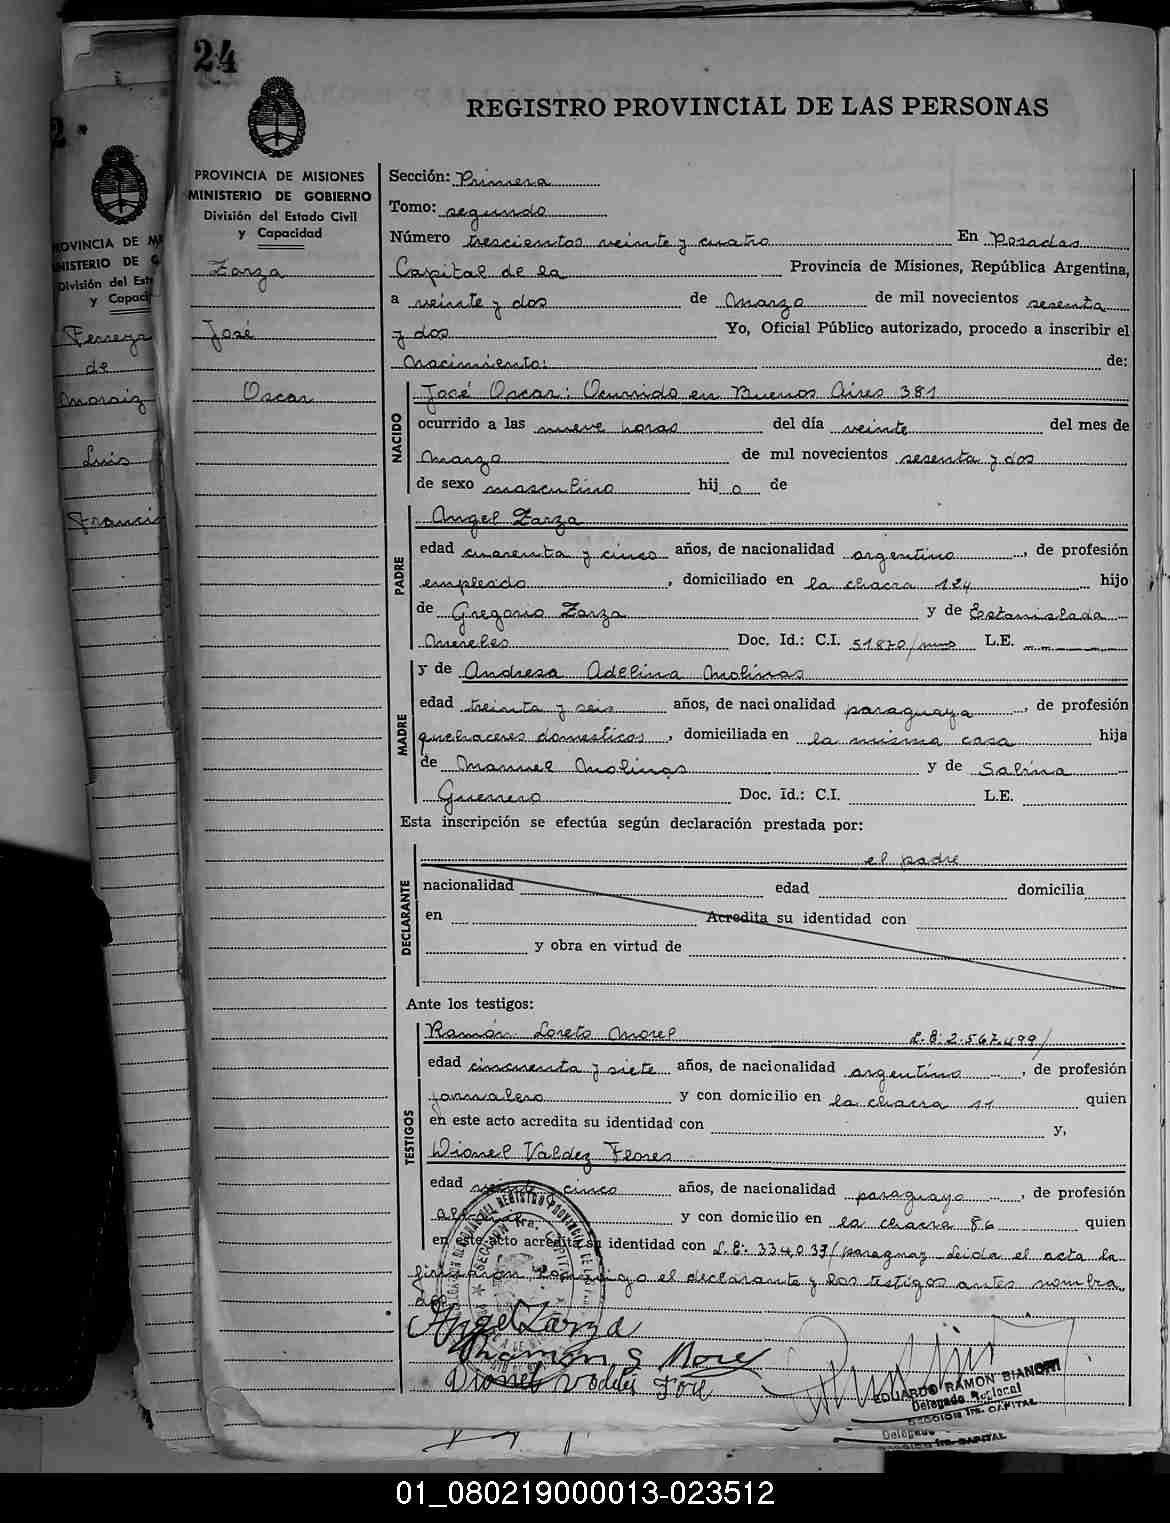 24
REGISTRO PROVINCIAL DE LAS PERSONAS
PROVINCIA DE MISIONES
MINISTERIO DE GOBIERNO
División del Estado Civil
y Capacidad
Zarza
José
Oscar
2
OVINCIA DE M
NISTERIO DE G
División del Est
y Capaci
Ferreyra
de
Moraiz
Luis
Francis
Sección: Primera
Tomo: segundo
Número trescientos veinte y cuatro En Posadas
Capital de la Provincia de Misiones, República Argentina,
a veinte y dos de Marzo de mil novecientos sesenta
y dos Yo, Oficial Público autorizado, procedo a inscribir el
Nacimiento: de:
NACIDO
José Oscar: Ocurrido en Buenos Aires 381
ocurrido a las nueve horas del día veinte del mes de
Marzo de mil novecientos sesenta y dos
de sexo masculino hij o de
PADRE
Angel Zarza
edad cuarenta y cinco años, de nacionalidad argentino, de profesión
empleado, domiciliado en la chacra 124 hijo
de Gregorio Zarza y de Estanislada
Mereles Doc. Id.: C.I. 51870/mns L.E.
MADRE
y de Andresa Adelina Molinas
edad treinta y seis años, de nacionalidad paraguaya, de profesión
quehaceres domesticos, domiciliada en la misma casa hija
de Manuel Molinas y de Sabina
Guerrero Doc. Id.: C.I. L.E.
Esta inscripción se efectúa según declaración prestada por:
DECLARANTE
el padre
nacionalidad edad domicilia
en Acredita su identidad con
y obra en virtud de
Ante los testigos:
TESTIGOS
Ramón Loreto Morel L.E: 2.567.499/
edad cincuenta y siete años, de nacionalidad argentino, de profesión
jornalero y con domicilio en la chacra 11 quien
en este acto acredita su identidad con y,
Dionel Valdez Flores
edad veinte y cinco años, de nacionalidad paraguayo, de profesión
y con domicilio en la chacra 86 quien
en este acto acredita su identidad con L.E: 334.037/paraguay Leida el acta la
firmaron conmigo el declarante y los testigos antes nombra
dos
Angel Zarza
Ramon L Morel
Dionel Valdez Flore
EDUARDO RAMON BIANCHI
Delegado Seccional
SECCION 1ra. CAPITAL
Delegado
SECCION 1ra. CAPITAL
01_080219000013-023512